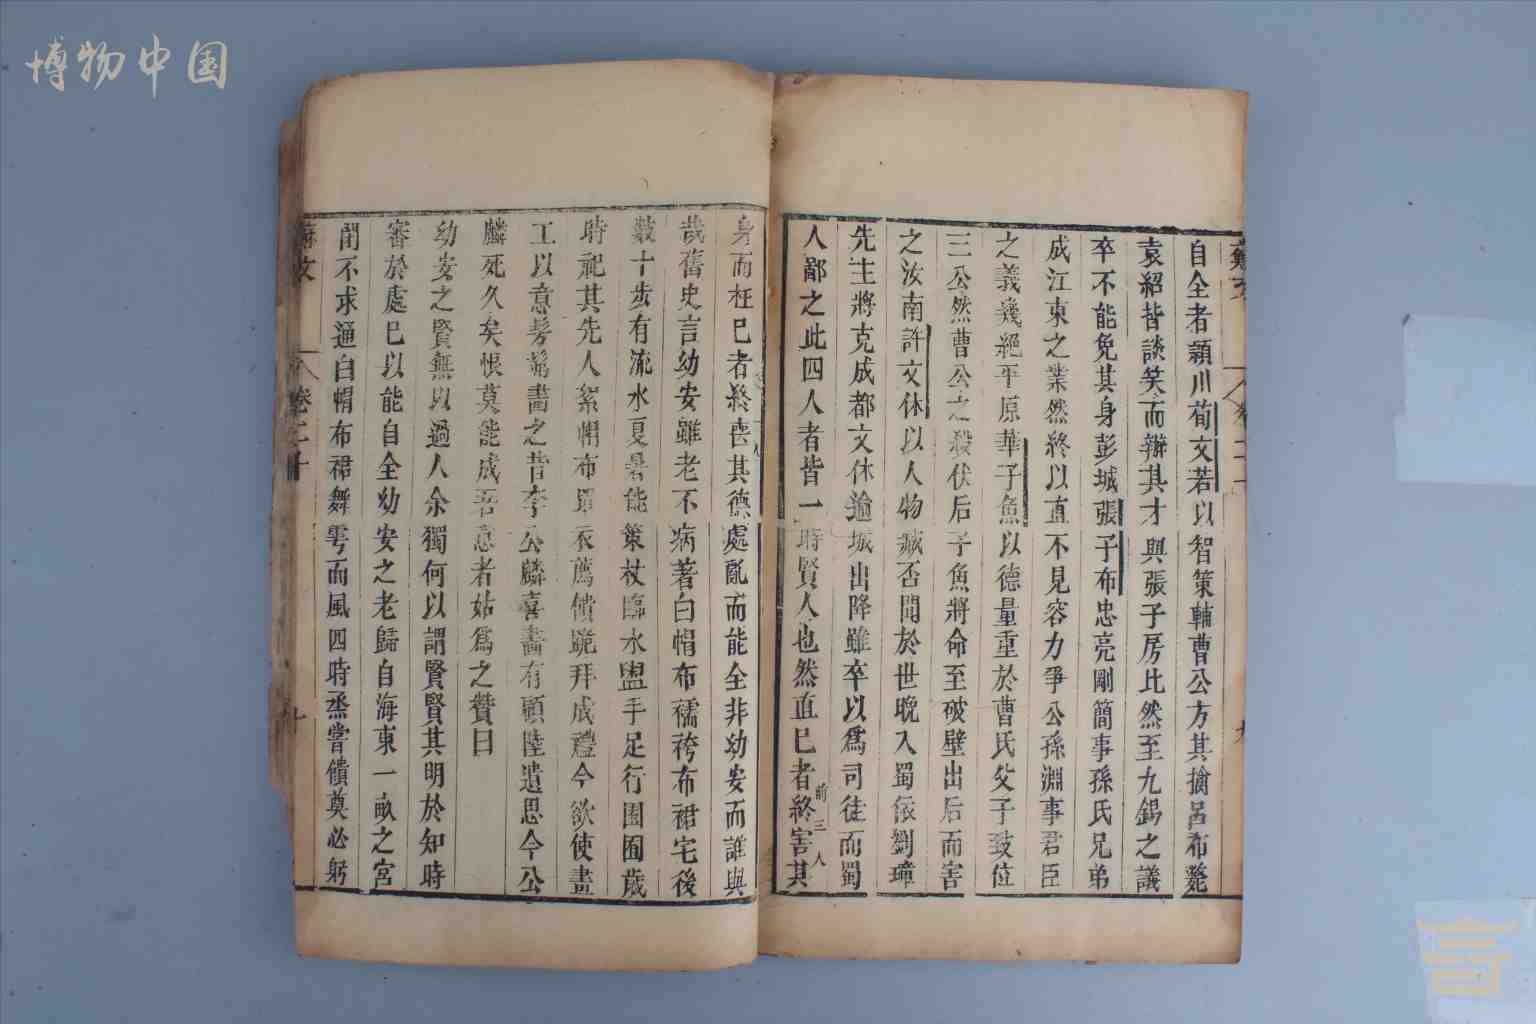 博物中国
自全者潁川荀文若以智策輔曹公方其擒呂布斃
袁紹皆談笑而辦其才與張子房比然至九錫之議
卒不能免其身彭城張子布忠亮剛簡事孫氏兄弟
成江東之業然終以直不見容力爭公孫淵事君臣
之義幾絕平原華子魚以德量重於曹氏父子致位
三公然曹公之殺伏后子魚將命至破壁出后而害
之汝南許文休以人物臧否聞於世晚入蜀依劉璋
先主將克成都文休逾城出降雖卒以為司徒而蜀
人鄙之此四人者皆一時賢人也然直巳者終害其
前三人
身而枉巳者終喪其德處亂而能全非幼安而誰與
哉舊史言幼安雖老不病著白帽布襦袴布裙宅後
數十步有流水夏暑能策杖臨水盥手足行園囿歲
時祀其先人絮帽布單衣薦饋跪拜成禮今欲使畫
工以意髣髴畫之昔李公麟喜畫有顧陸遺思今公
麟死久矣恨莫能成吾意者姑爲之贊曰
幼安之賢無以過人余獨何以謂賢賢其明於知時
審於處巳以能自全幼安之老歸自海東一畝之宮
閉不求通白帽布裙舞雩而風四時烝嘗饋奠必躬
卷二十
十